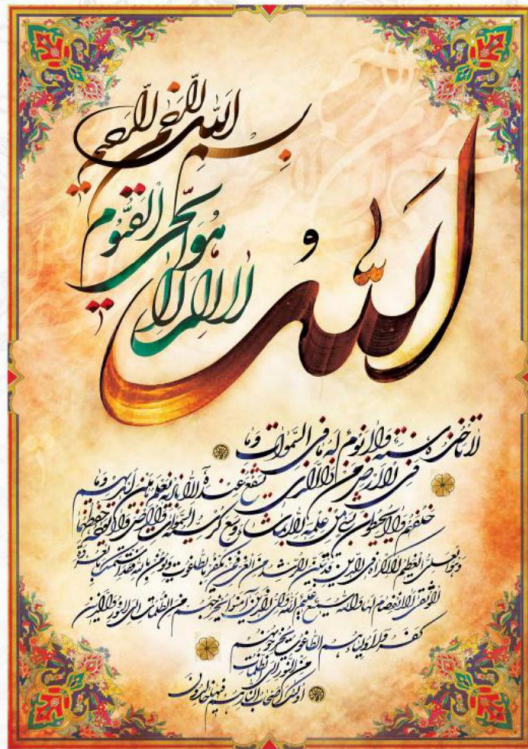 بِسْمِ اللهِ الرَّحْمنِ الرَّحیم
اللهُ
لا اله الا
هُوَ الحَیُّ القَیُّوم
لا تاخذه سنة ولا نوم له ما فی السموات وما
فی الارض من ذا الذی یشفع عنده الا باذنه یعلم ما بین ایدیهم وما
خلفهم ولا یحیطون بشیء من علمه الا بما شاء وسع کرسیه السموات والارض ولا یؤده حفظهما
وهو العلی العظیم لا اکراه فی الدین قد تبین الرشد من الغی فمن یکفر بالطاغوت ویؤمن بالله فقد استمسک بالعروة
الوثقی لا انفصام لها والله سمیع علیم الله ولی الذین آمنوا یخرجهم من الظلمات الی النور والذین
کفروا اولیاؤهم الطاغوت یخرجونهم
من النور الی الظلمات
اولئک اصحاب النار هم فیها خالدون